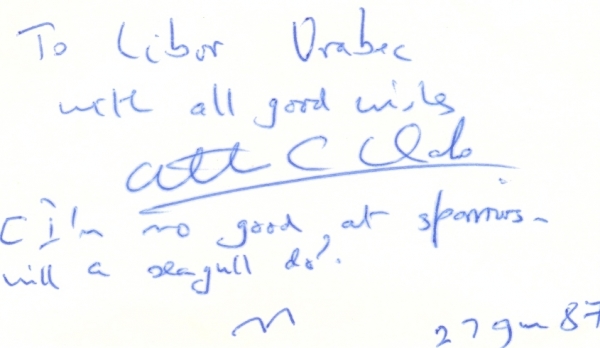 To Libor Vrabec
with all good wishes
Arth C Clarke
( I'm no good at sparrows -
will a seagull do?.
27 Jan 87